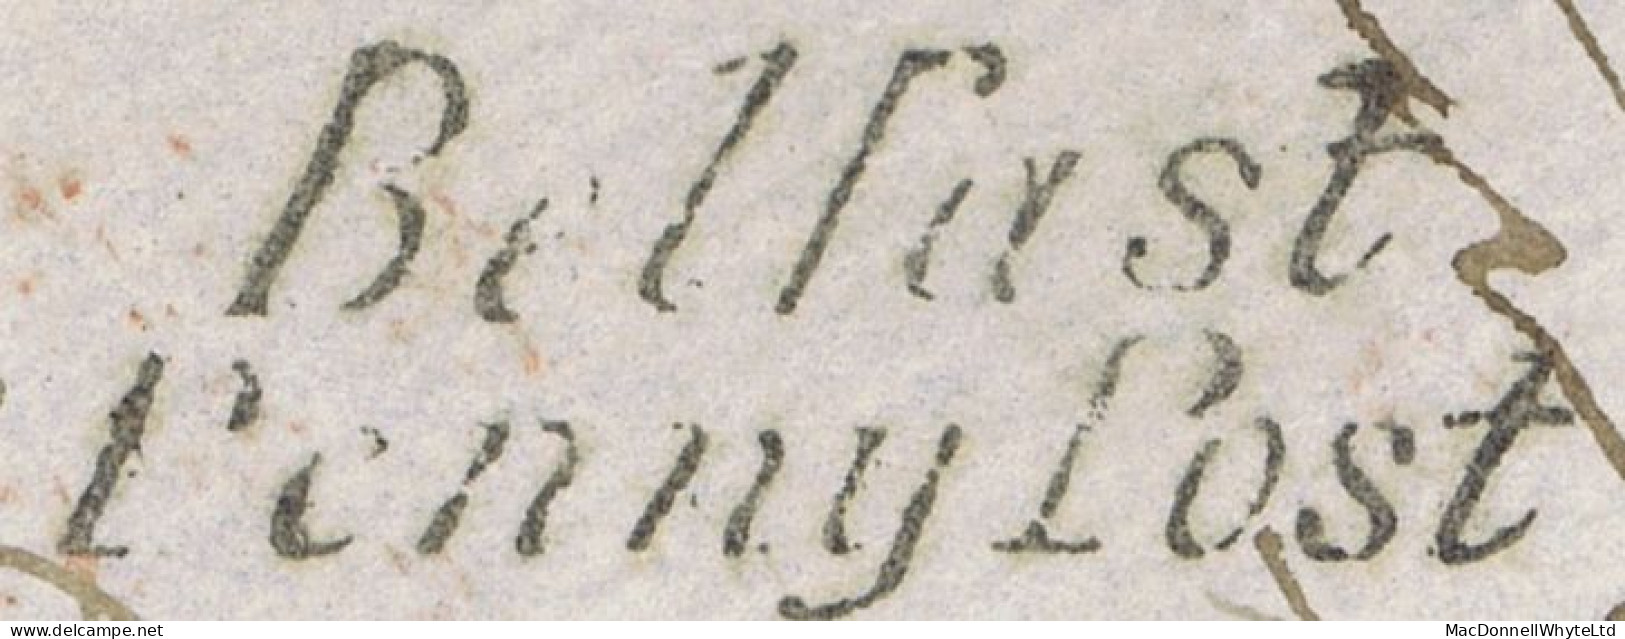 Belfast
Penny Post
www.delcampe.net
MacDonnellWhyteLtd